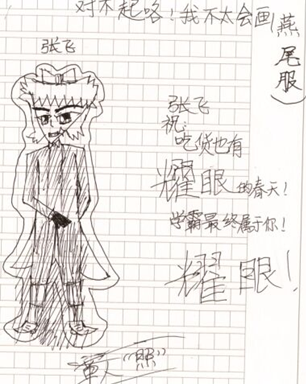 对不起咯！我不太会画燕尾服）
张飞
张飞
祝：
吃货也有
耀眼的春天！
学霸最终属于你！
耀眼！
"照"